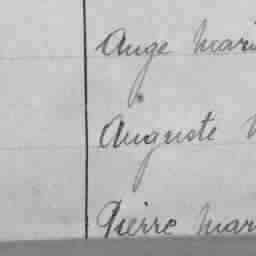 Ange Mari
Auguste
Pierre Mar